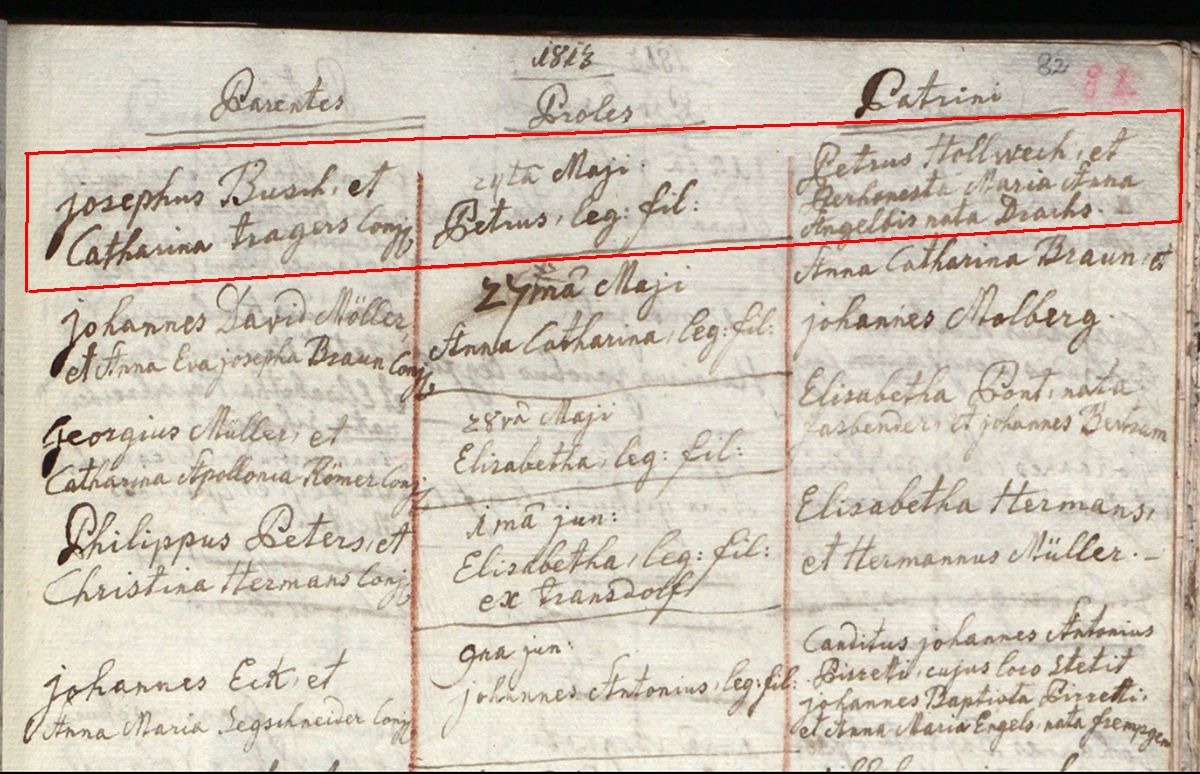 1813
82
82
Parentes
Proles
Patrini
josephus Busch, et
Catharina tragers Conj:
24ta Maji
Petrus, leg: fil:
Petrus Hollwech, et
Perhonesta Maria Anna
Angelbis nata Drachs.
johannes David Möller,
et Anna Eva josepha Braun Conj:
27mâ Maji
Anna Catharina, leg: fil:
Anna Catharina Braun, et
johannes Molberg.
Georgius Müller, et
Catharina Apollonia Römer Conj:
28vâ Maji
Elisabetha, leg: fil:
Elisabetha Pont, nata
fasbender, et johannes Bertram
Philippus Peters, et
Christina Hermans Conj:
1mâ jun:
Elisabetha, leg: fil:
ex transdorf
Elisabetha Hermans,
et Hermannus Müller. –
johannes Eck, et
Anna Maria Legschneider Conj:
9na jun:
johannes Antonius, leg: fil:
Canditus johannes Antonius
Birretti, cujus loco stetit
johannes Baptista Birretti,
et Anna Maria Engels, nata frempgen